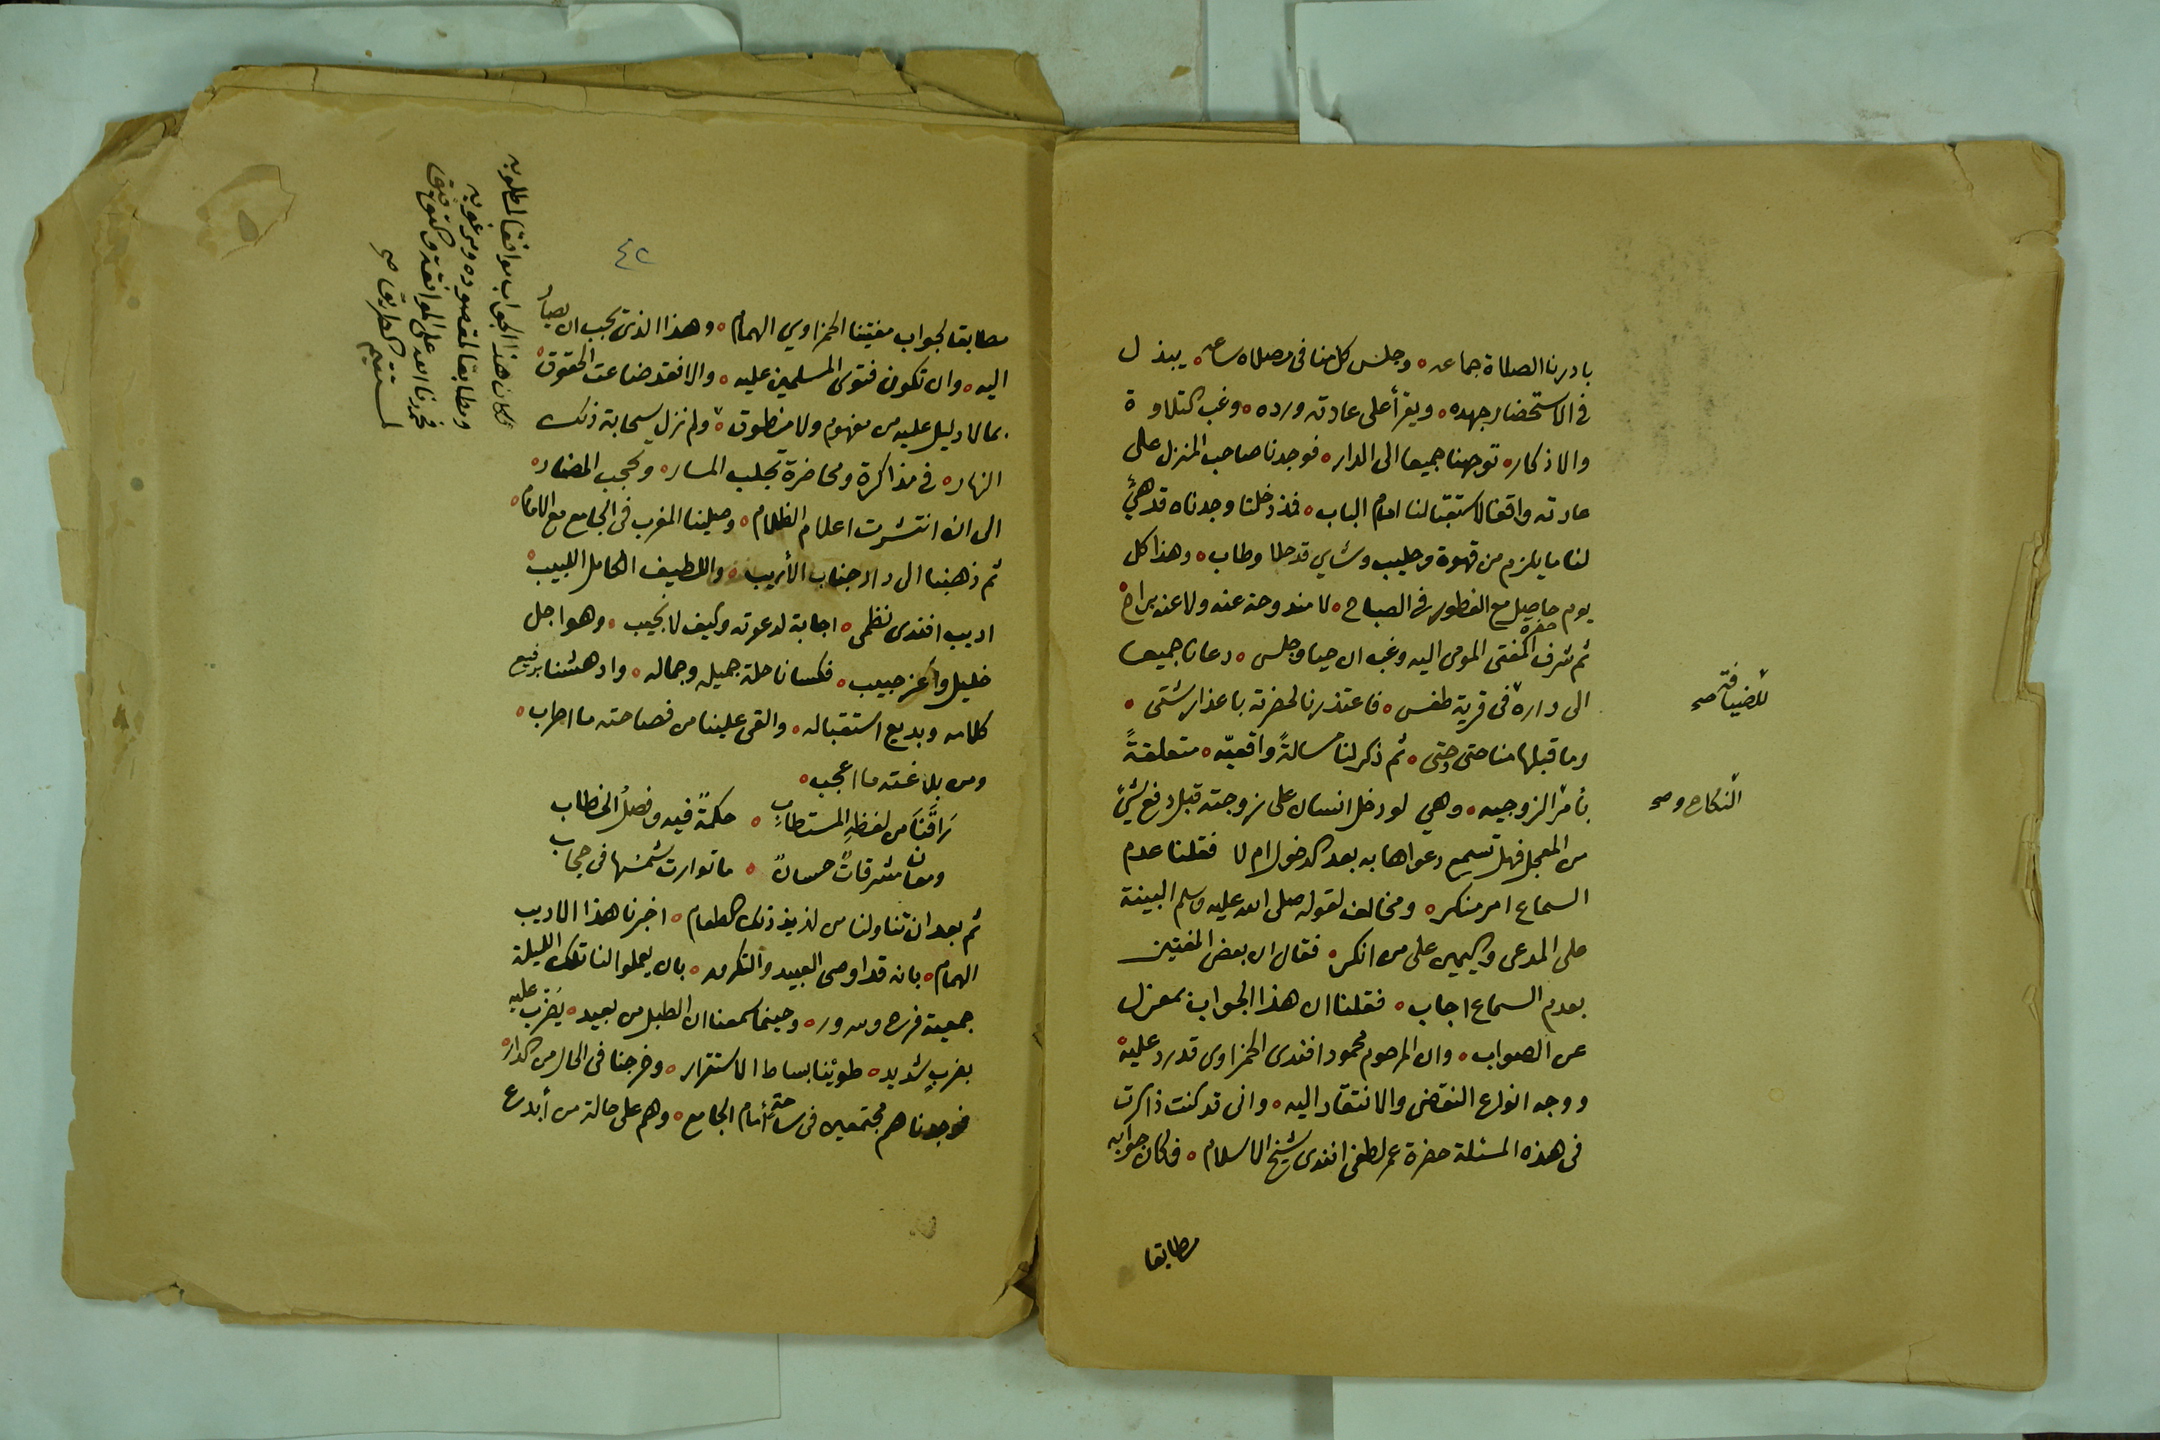 بادرنا الصلاة جماعه ٥ وجلس كل منا في مصلاه ساعه ٥ يبذل
في الاستحضار جهده ٥ ويقرأ على عادته ورده ٥ وغب التلاوة
والاذكار ٥ توجهنا جميعا الى الدار ٥ فوجدنا صاحب المنزل على
عادته واقفا لاستقبالنا امام الباب ٥ فمذ دخلنا وجدناه قد هيئ
لنا ما يلزم من قهوة وحليب وشاي قد حلا وطاب ٥ وهذا كل
يوم حاصل مع الفطور في الصباح ٥ لا مندوحة عنه ولا عنه براح
ثم شرف حضرة المفتي المومى اليه وغب ان حيا وجلس ٥ دعانا جميعا
للضيافة صح
الى داره في قرية طفس ٥ فاعتذرنا لحضرته باعذار شتى ٥
وما قبلها منا حتى وحتى ٥ ثم ذكر لنا مسالةً واقعيّه ٥ متعلقةً
النكاح و صح
بأمر الزوجيه ٥ وهي لو دخل انسان على زوجته قبل دفع شيئ
من المعجل فهل تسمع دعواها به بعد الدخول ام لا فقلنا عدم
السماع امر منكر ٥ ومخالف لقوله صلى الله عليه وسلم البينة
على المدعى واليمين على من انكر ٥ فقال ان بعض المفتين
بعدم السماع اجاب ٥ فقلنا ان هذا الجواب بمعزل
عن الصواب ٥ وان المرحوم محمود افندى الحمزاوى قد رد عليه
ووجه انواع النقض والانتقاد اليه ٥ واني قد كنت ذاكرت
في هذه المسئلة حضرة عمر لطفي افندى شيخ الاسلام ٥ فكان جوابه
مطابقا
٤٢
مطابقا لجواب مفتينا الحمزاوي الهمام ٥ وهذا الذي يجب ان يصار
اليه ٥ وان تكون فتوى المسلمين عليه ٥ والا فقد ضاعت الحقوق ٥
بما لا دليل عليه من مفهوم ولا منطوق ٥ ولم نزل سحابة ذلك
النهار ٥ في مذاكرة ومحاضرة تجلب المسار ٥ وتحجب المضار ٥
الى ان انتشرت اعلام الظلام ٥ وصلينا المغرب في الجامع مع الامام ٥
ثم ذهبنا الى دار جناب الأريب ٥ واللطيف الكامل اللبيب ٥
اديب افندى نظمى ٥ اجابة لدعوته وكيف لا نجيب ٥ وهو اجل
خليل وأعز حبيب ٥ فكسانا حلة جميله وجماله ٥ وادهشنا برفيع
كلامه وبديع استقباله ٥ والقى علينا من فصاحته ما اطرب ٥
ومن بلاغته ما اعجب ٥
رَاقَنَا من لفظهِ المستطابِ ٥ حكمةً فيه وفصلُ الخطاب
ومعانٍ مشرقاتٌ حسانٌ ٥ ما توارت شمسها في حجاب
ثم بعد ان تناولنا من لذيذ ذلك الطعام ٥ اخبرنا هذا الاديب
الهمام ٥ بانه قد اوصى العبيد والتكرور ٥ بان يعملوا لنا تلك الليلة
جمعية فرح وسرور ٥ وحينما سمعنا ان الطبل من بعيد ٥ يُضْرَب عليه
بضربٍ شديد ٥ طوَينا بساط الاستقرار ٥ وخرجنا في الحال من الدار ٥
فوجدناهم مجتمعين في ساحة أمام الجامع ٥ وهم على حالة من أبدع
فكان هذا الجواب موافقا لمطلوبه
ومطابقا لمقصوده ومرغوبه
فحمدنا الله على الموافقة والتوفيق
لمستقيم الطريق صح